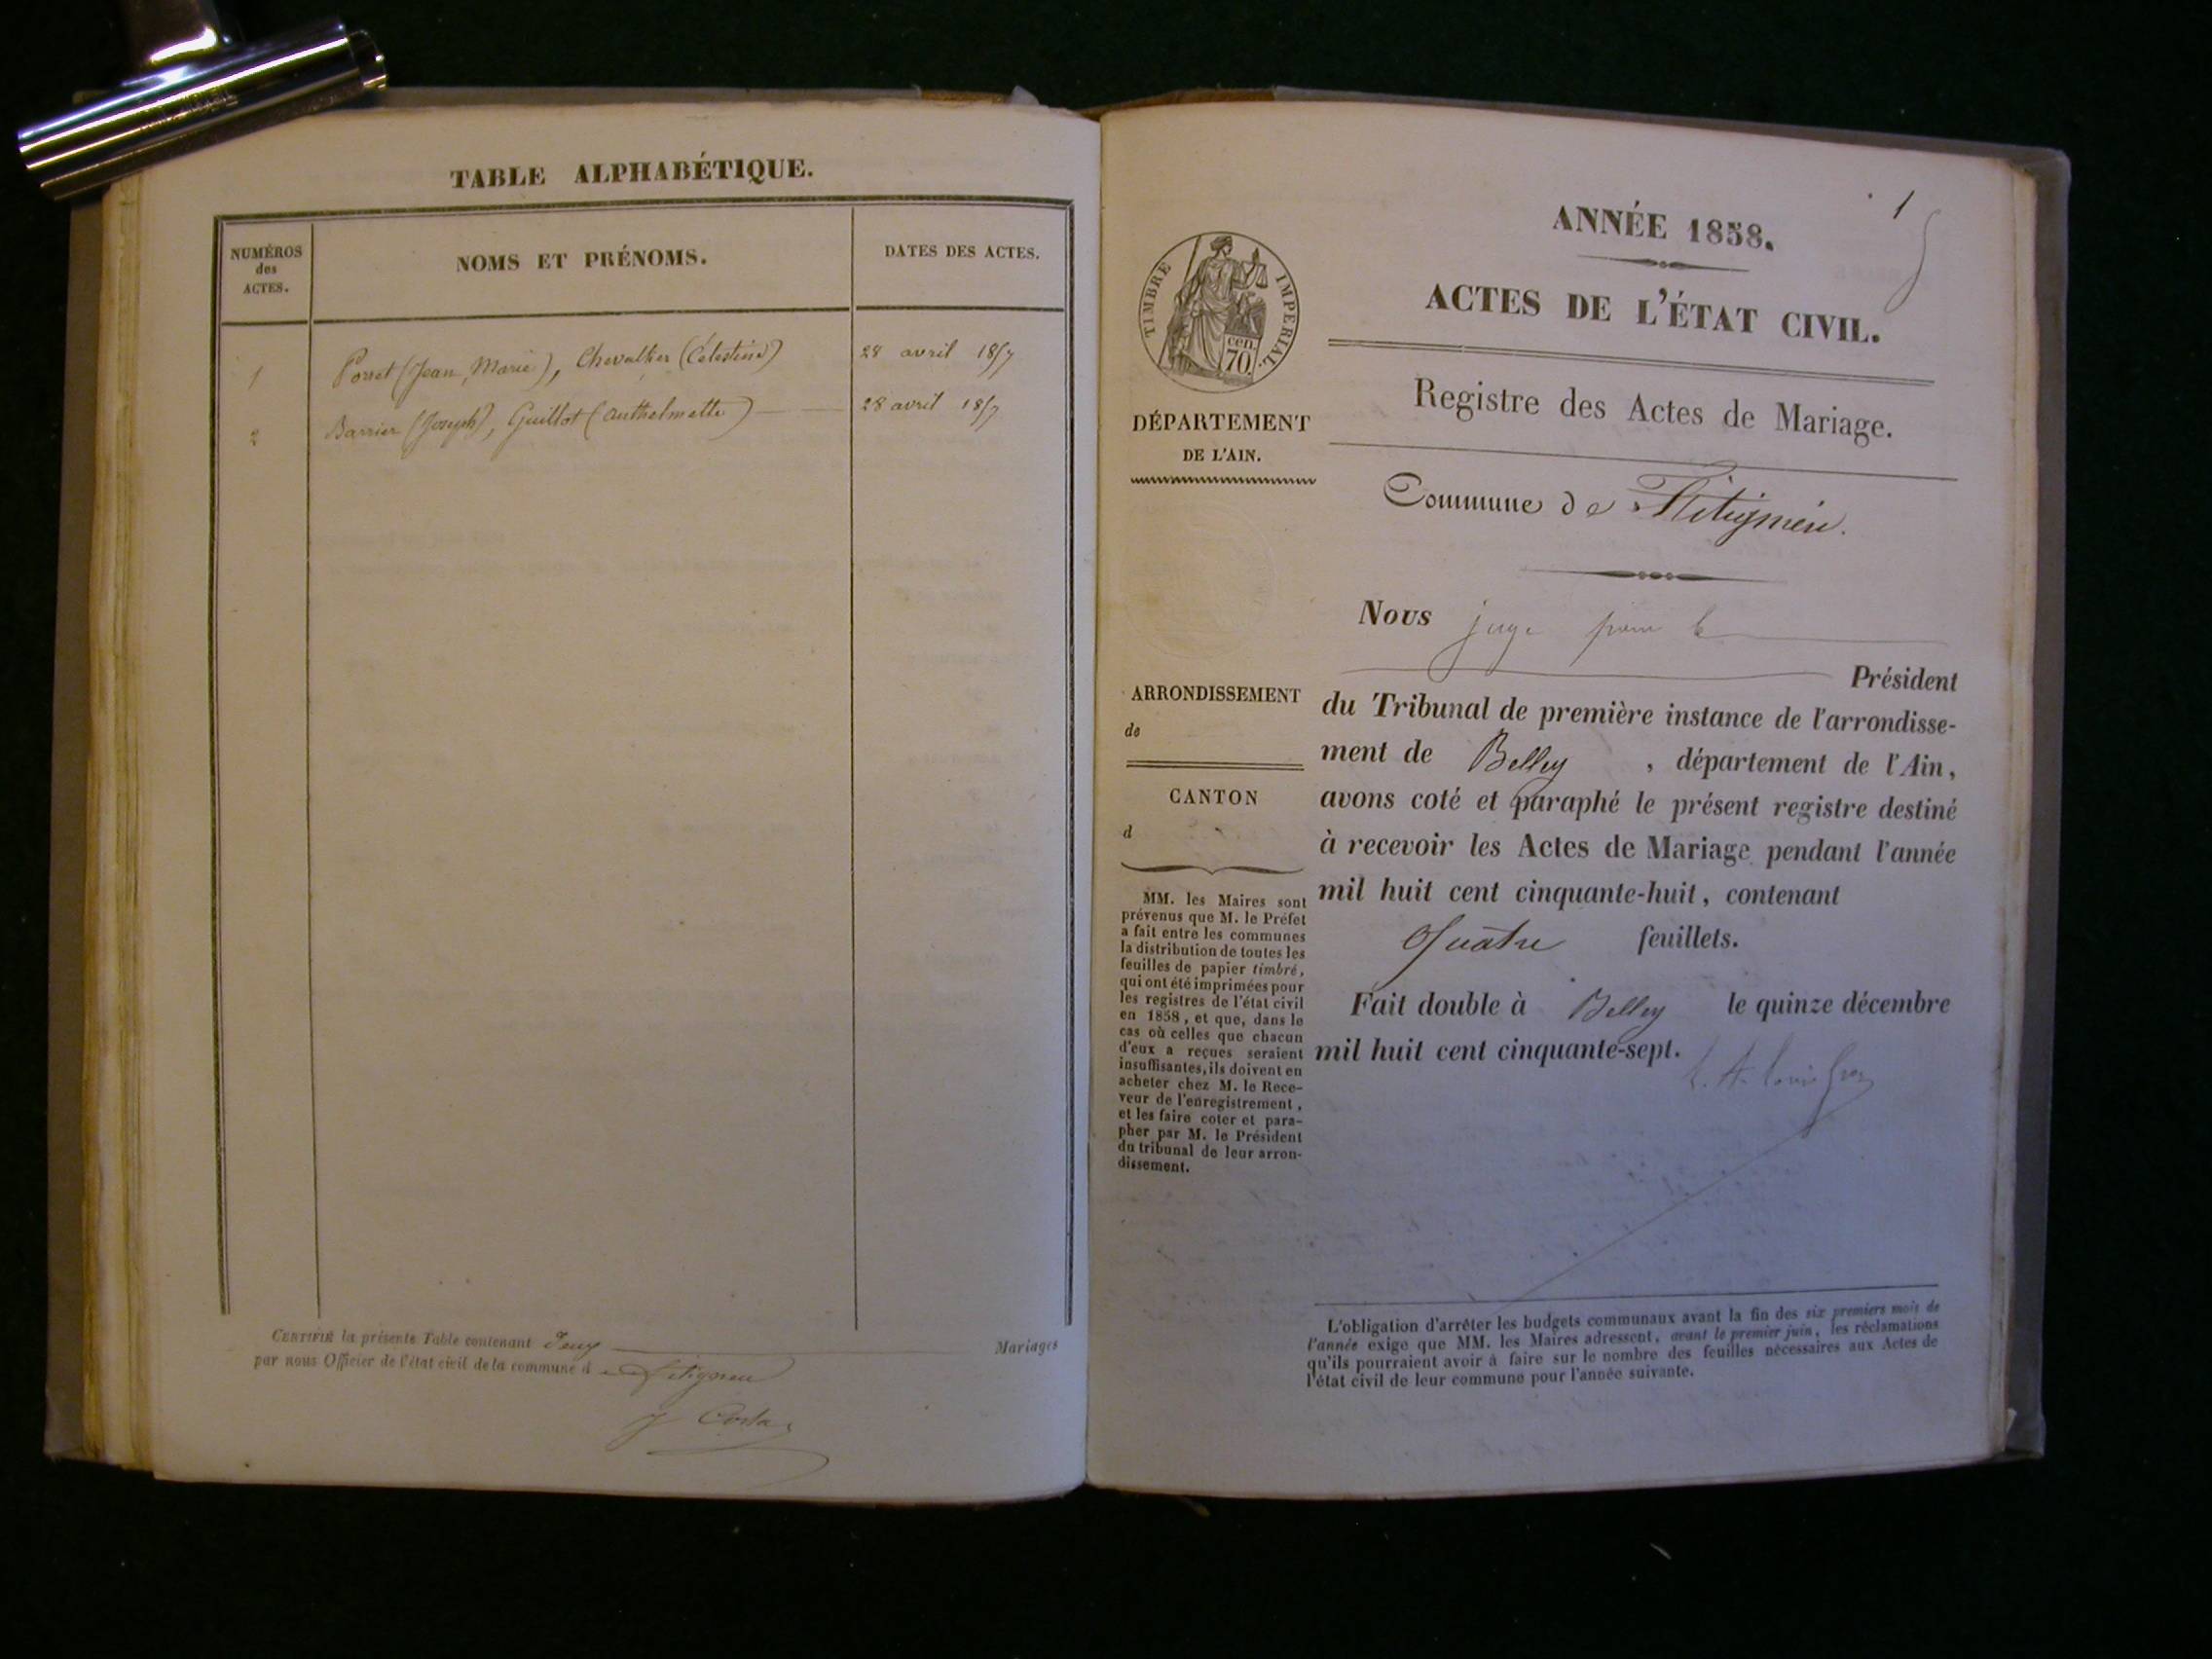 TABLE ALPHABÉTIQUE.
NUMÉROS
des
ACTES.
NOMS ET PRÉNOMS.
DATES DES ACTES.
1 Porret (Jean, Marie), Chevallier (Célestine) 28 avril 1857
2 Barrier (Joseph), Guillot (Anthelmette) 28 avril 1857
CERTIFIÉ la présente Table contenant Deux Mariages
par nous Officier de l'état civil de la commune d
J Costa
1
ANNÉE 1858.
ACTES DE L'ÉTAT CIVIL.
Registre des Actes de Mariage.
TIMBRE IMPÉRIAL.
cen.
70.
DÉPARTEMENT
DE L'AIN.
Commune de
Nous juge pour le
Président
du Tribunal de première instance de l'arrondisse-
ment de Belley , département de l'Ain,
avons coté et paraphé le présent registre destiné
à recevoir les Actes de Mariage pendant l'année
mil huit cent cinquante-huit, contenant
Quatre feuillets.
Fait double à Belley le quinze décembre
mil huit cent cinquante-sept.
ARRONDISSEMENT
de
CANTON
d
MM. les Maires sont
prévenus que M. le Préfet
a fait entre les communes
la distribution de toutes les
feuilles de papier timbré,
qui ont été imprimées pour
les registres de l'état civil
en 1858, et que, dans le
cas où celles que chacun
d'eux a reçues seraient
insuffisantes, ils doivent en
acheter chez M. le Rece-
veur de l'enregistrement,
et les faire coter et para-
pher par M. le Président
du tribunal de leur arron-
dissement.
L'obligation d'arrêter les budgets communaux avant la fin des six premiers mois de
l'année exige que MM. les Maires adressent, avant le premier juin, les réclamations
qu'ils pourraient avoir à faire sur le nombre des feuilles nécessaires aux Actes de
l'état civil de leur commune pour l'année suivante.